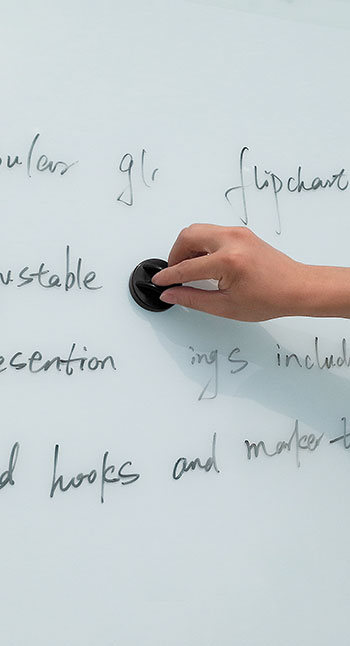 ular gl flipchart
ustable
esention ings includ
d hooks and marker t